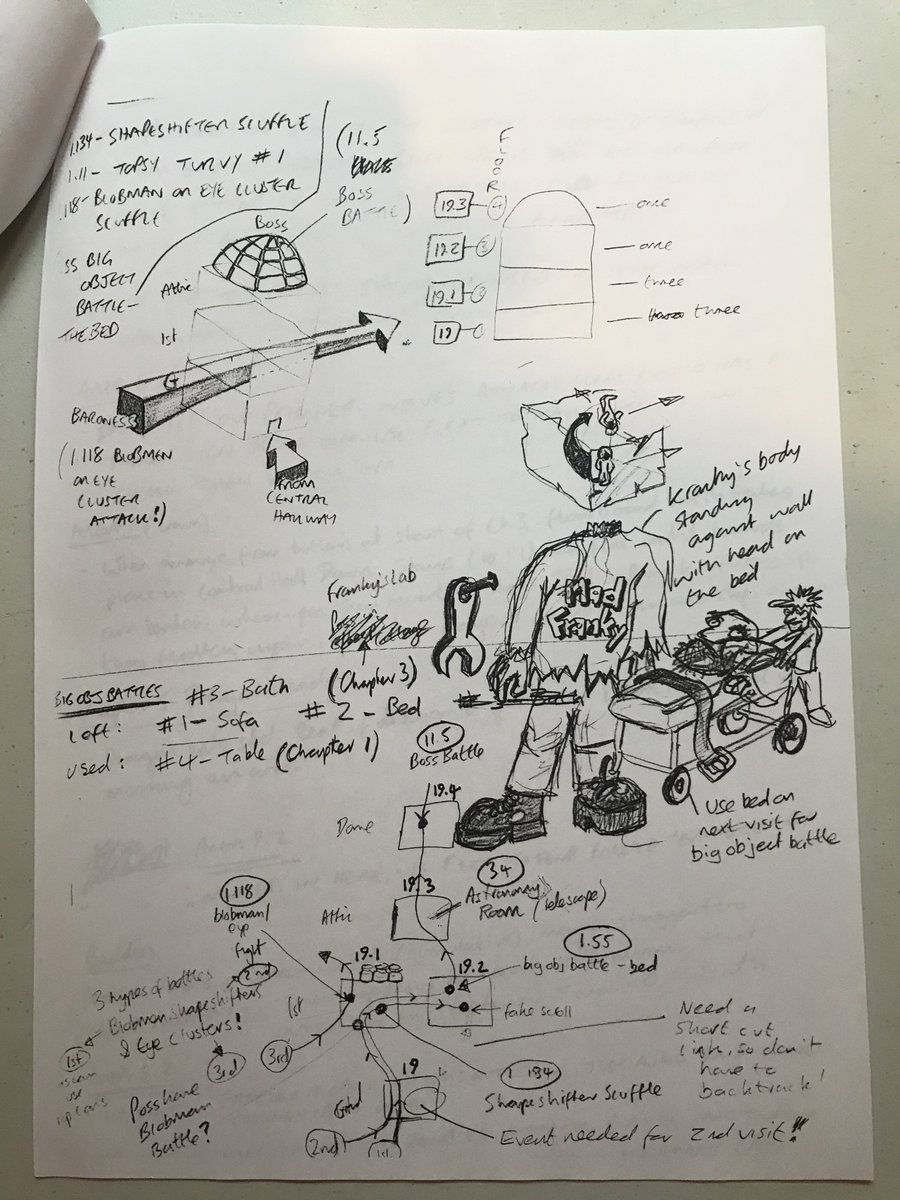 1.134 - SHAPESHIFTER SCUFFLE
1.11 - TOPSY TURVY #1
.118 - BLOBMAN OR EYE CLUSTER
SCUFFLE
55 BIG
OBJECT
BATTLE -
THE BED
(11.5
BOSS
BATTLE)
Boss
Attic
1st
G
BARONESS
(1.118 BLOBMEN
OR EYE
CLUSTER
ATTACK!)
FROM
CENTRAL
HALLWAY
FLOOR
19.3 4 one
19.2 3 one
19.1 2 three
19 1 three
Kranky's body
standing
against wall
with head on
the bed
Mad
Franky
Franky's Lab
(Chapter 3)
BIG OBJ BATTLES #3 - Bath
Left: #1 - Sofa #2 - Bed
Used: #4 - Table (Chapter 1)
use bed on
next visit for
big object battle
11.5
Boss Battle
19.4
Dome
34
Astronomy
Room (telescope)
19.3
Attic
1.118
blobman/
eye
fight
1.55
big obj battle - bed
19.1
19.2
fake scroll
1st
3rd
3 types of battles
2nd
Blobman, shapeshifters
& Eye Clusters!
1st
3rd
Poss have
Blobman
Battle?
Need a
short cut
link, so don't
have to
backtrack!
1.134
Shapeshifter Scuffle
19
Grnd
2nd
1st
Event needed for 2nd visit!!!